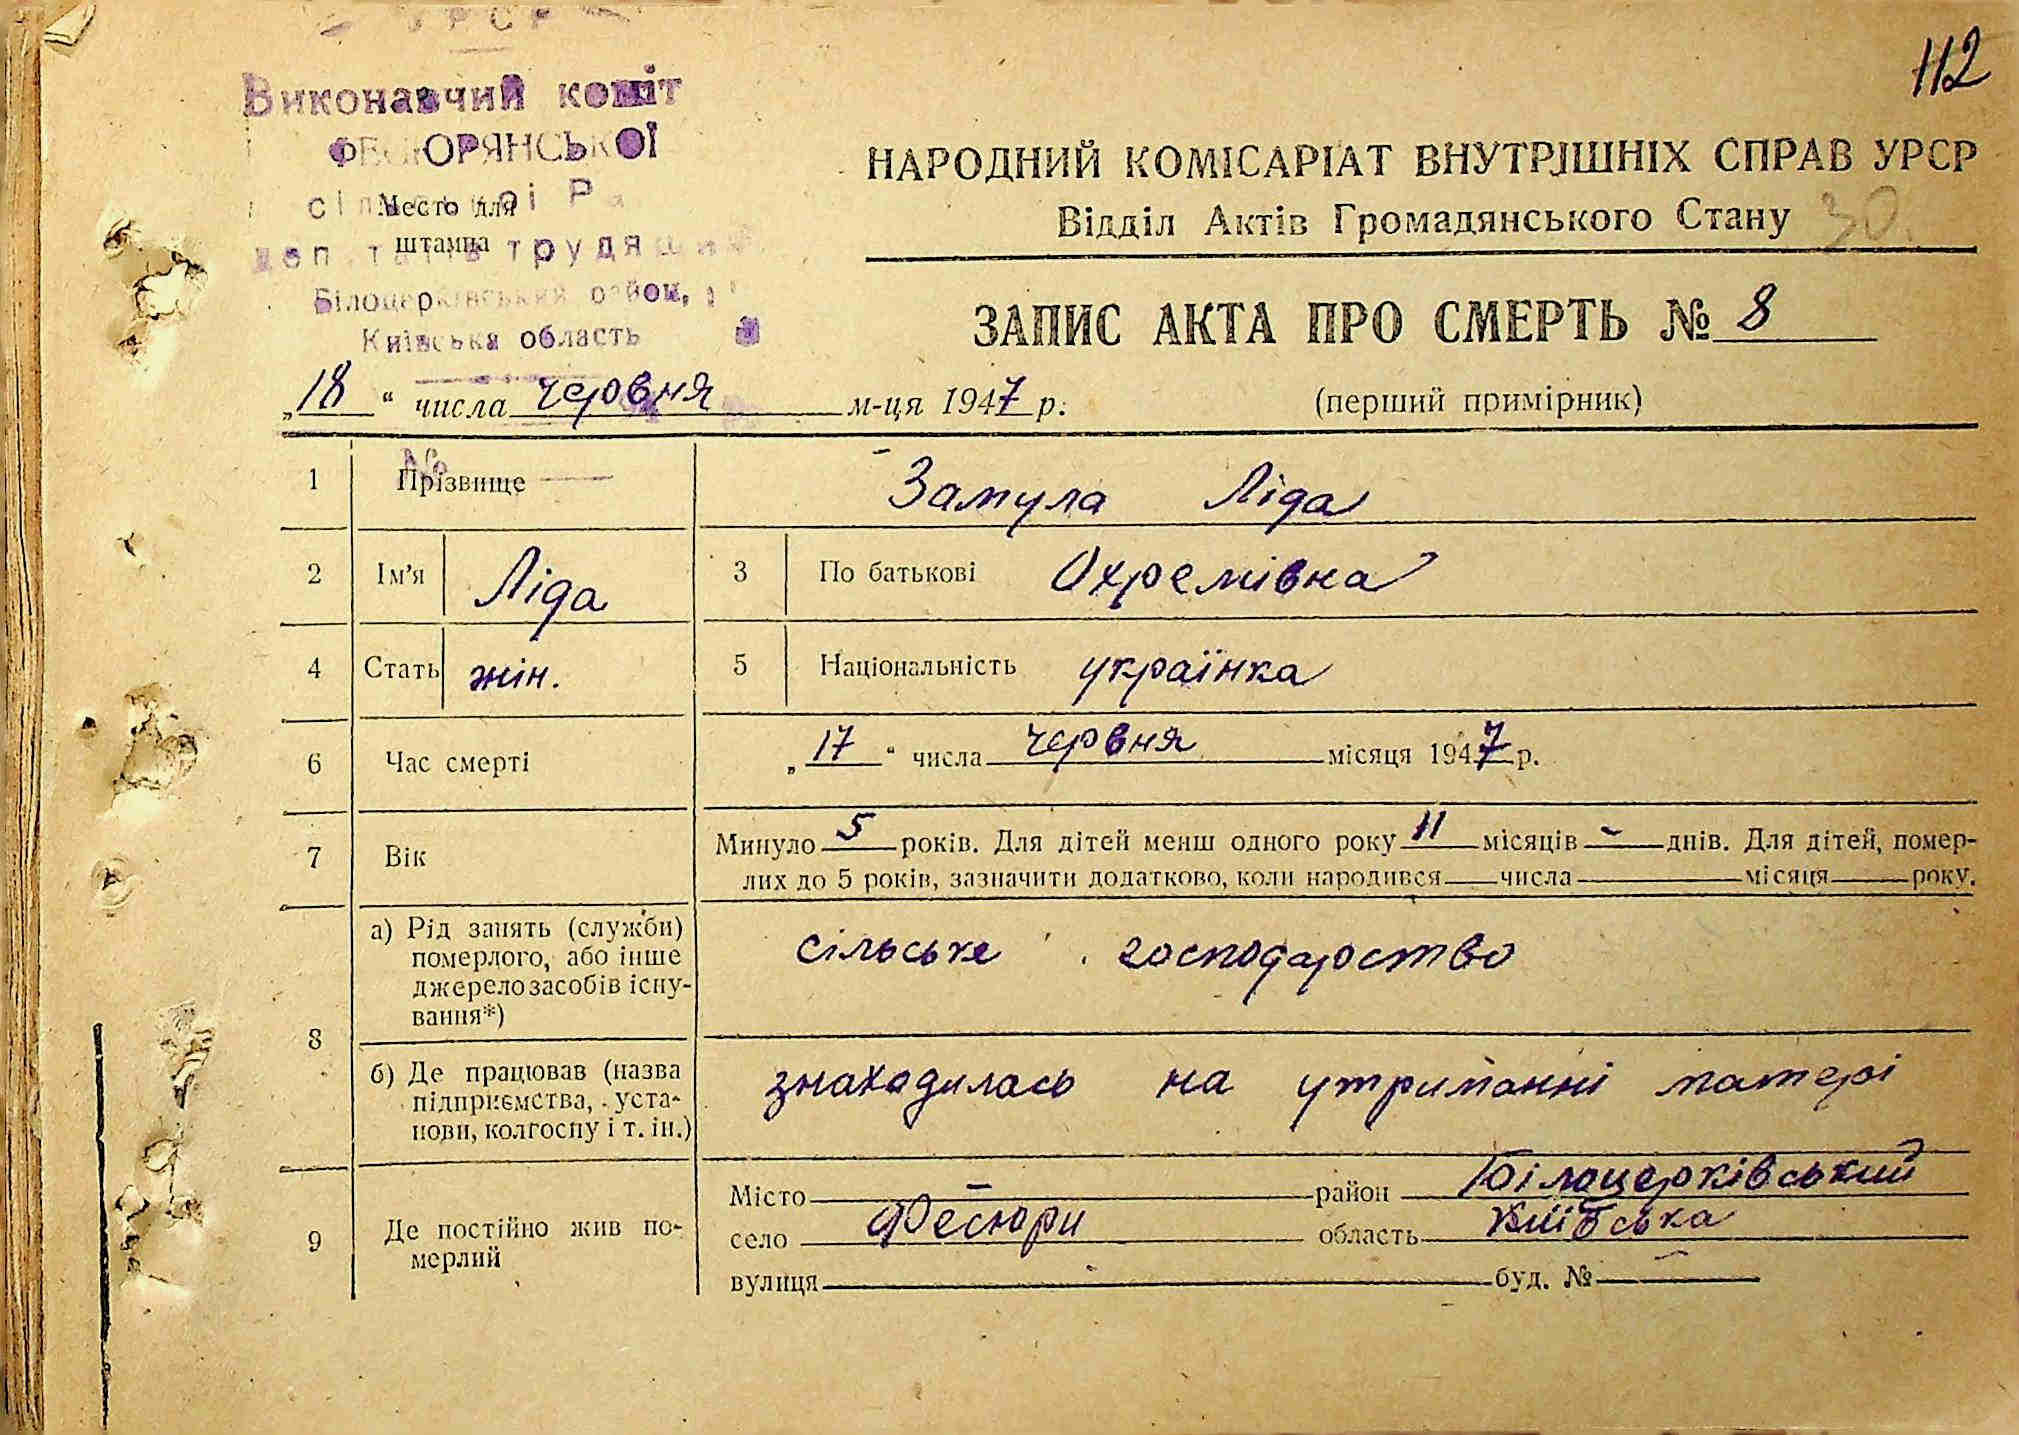 УРСР
112
Виконавчий коміт
ФЕСЮРЯНСЬКОЇ
Место для
штампа
трудящих
Білоцерківський район,
Київська область
НАРОДНИЙ КОМІСАРІАТ ВНУТРІШНІХ СПРАВ УРСР
Відділ Актів Громадянського Стану 30.
ЗАПИС АКТА ПРО СМЕРТЬ № 8
„18“ числа червня м-ця 1947 р.
(перший примірник)
№
1 Прізвище Замула Ліда
2 Ім'я Ліда 3 По батькові Охремівна
4 Стать жін. 5 Національність українка
6 Час смерті „17“ числа червня місяця 1947 р.
7 Вік Минуло 5 років. Для дітей менш одного року 11 місяців - днів. Для дітей, помер-
лих до 5 років, зазначити додатково, коли народився числа місяця року.
8 а) Рід занять (служби)
померлого, або інше
джерело засобів існу-
вання*)
сільське господарство
б) Де працював (назва
підприємства, уста-
нови, колгоспу і т. ін.)
знаходилась на утриманні матері
9 Де постійно жив по-
мерлий
Місто — район Білоцерківський
село Фесюри область Київська
вулиця буд. № —